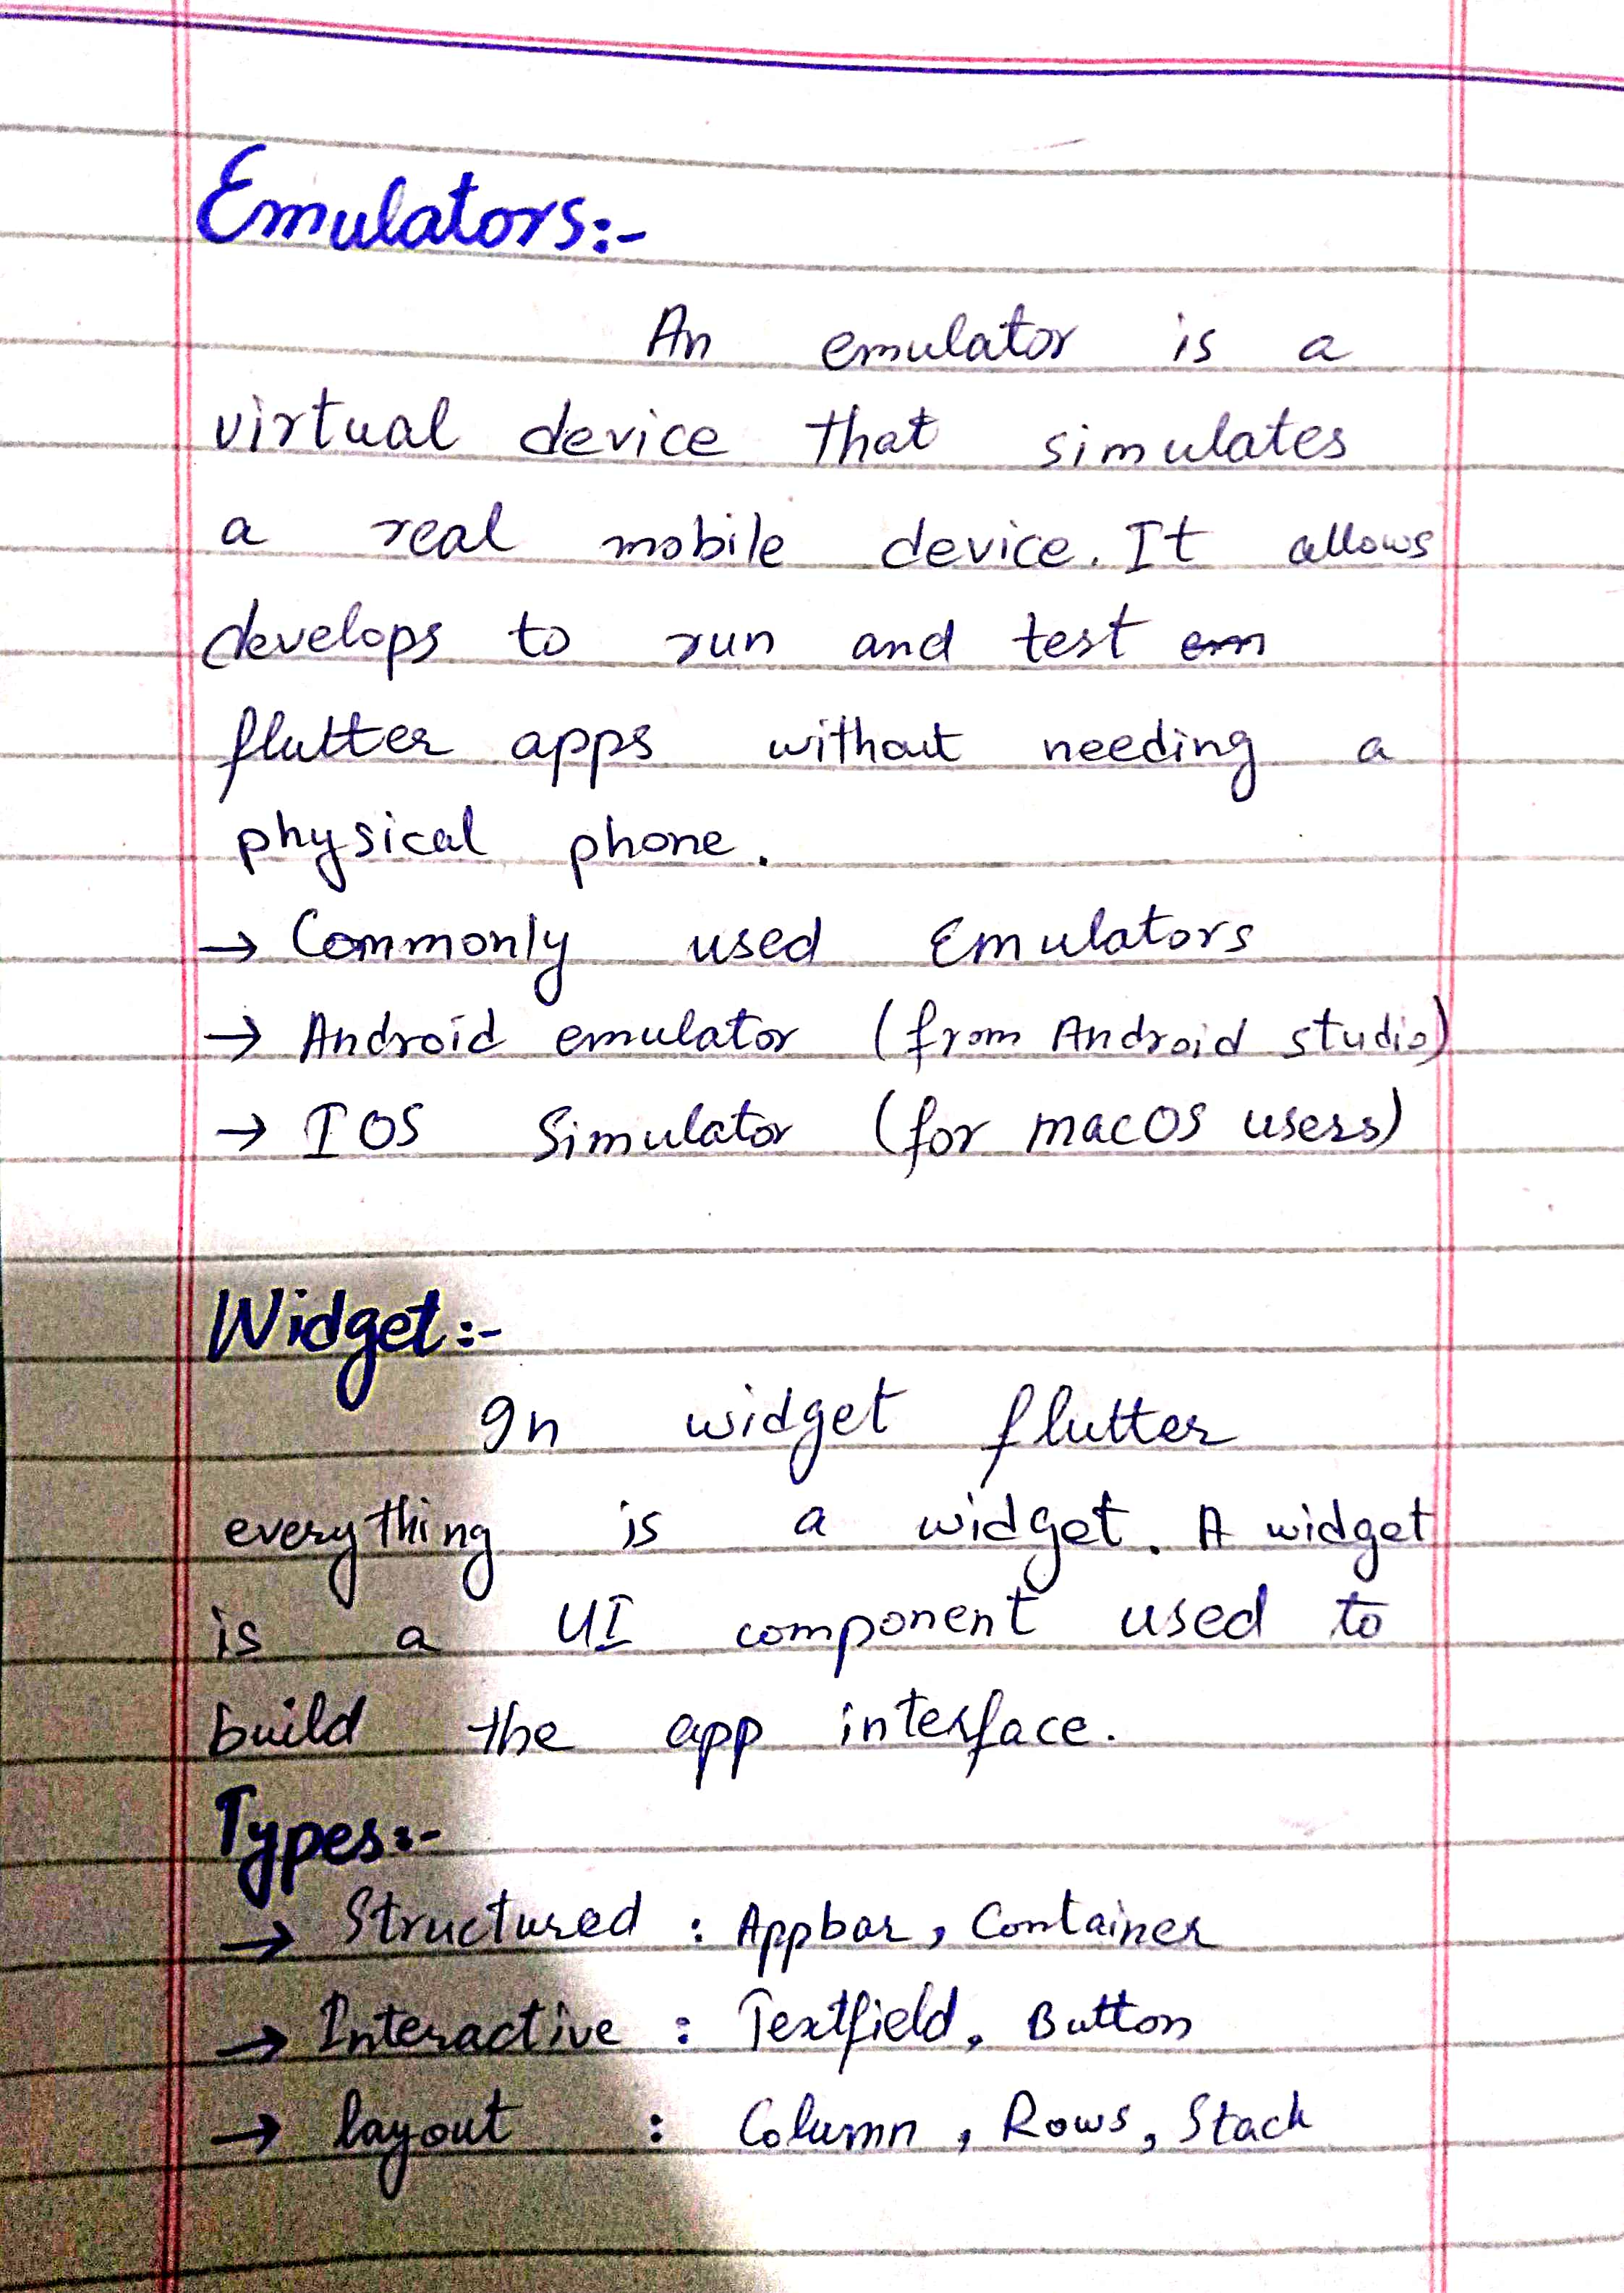 Emulators:-
An emulator is a
virtual device that simulates
a real mobile device. It allows
develops to run and test
flutter apps without needing a
physical phone.
→ Commonly used Emulators
→ Android emulator (from Android studio)
→ IOS Simulator (for macOS users)
Widget:-
In widget flutter
everything is a widget. A widget
is a UI component used to
build the app interface.
Types:-
→ Structured : Appbar, Container
→ Interactive : Textfield, Button
→ layout : Column, Rows, Stack